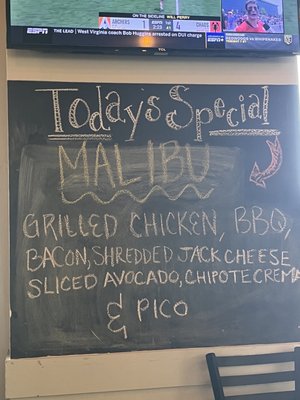 ON THE SIDELINE WILL PERRY
ARCHERS 1 1st 2:23 4 CHAOS
ESPN THE LEAD West Virginia coach Bob Huggins arrested on DUI charge
ESPN+
TCL
Today's Special
MALIBU
GRILLED CHICKEN, BBQ,
BACON, SHREDDED JACK CHEESE
SLICED AVOCADO, CHIPOTE CREMA
& PICO